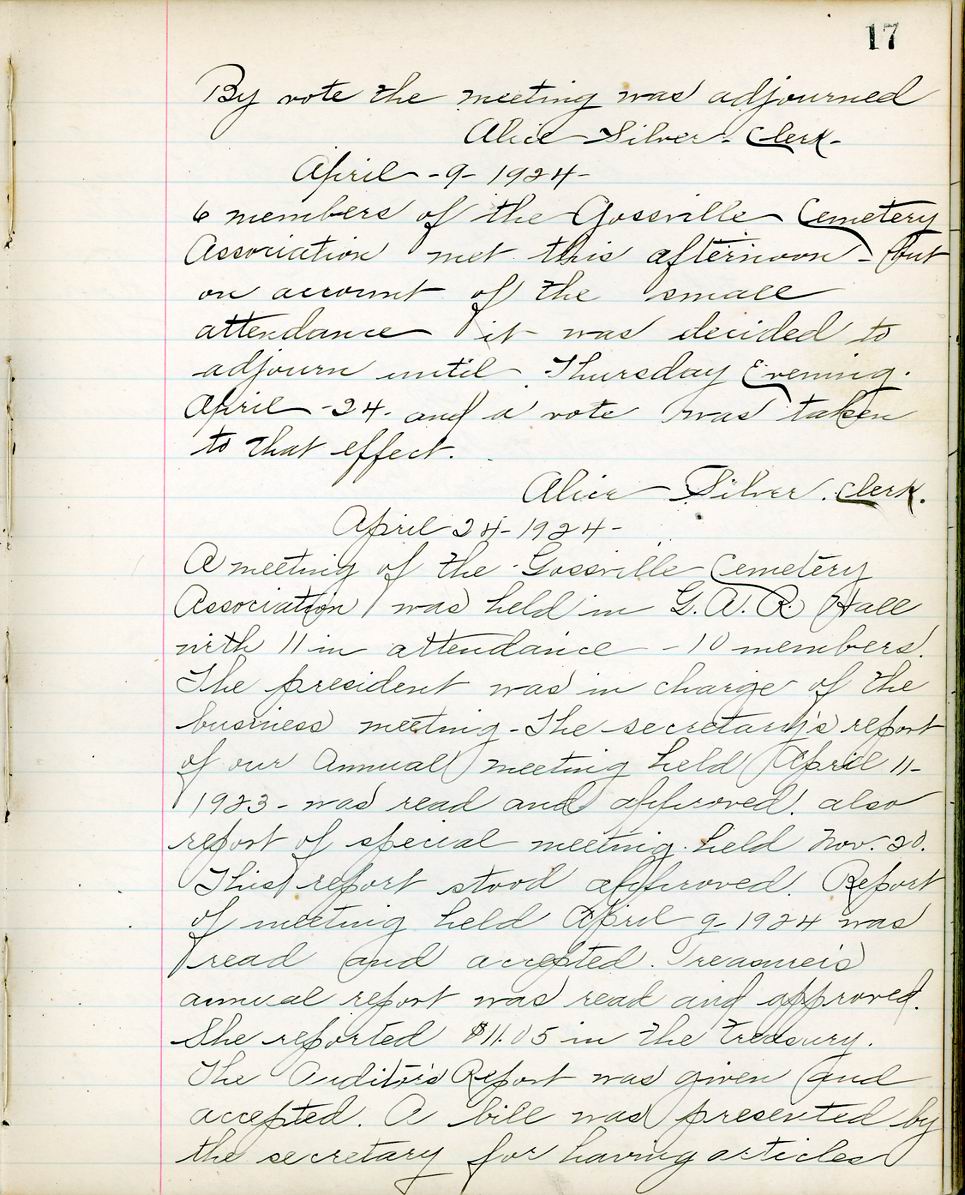 17
By vote the meeting was adjourned
Alice Silver. Clerk-
April -9- 1924-
6 members of the Gossville Cemetery
Association met this afternoon - but
on account of the small
attendance it was decided to
adjourn until Thursday Evening.
April -24- and a vote was taken
to that effect.
Alice Silver. Clerk.
April 24-1924-
A meeting of the Gossville Cemetery
Association was held in G.A.R. Hall
with 11 in attendance - 10 members.
The president was in charge of the
business meeting - The secretary's report
of our Annual meeting held April 11-
1923- was read and approved. also
report of special meeting held Nov. 20.
This report stood approved. Report
of meeting held April 9-1924 was
read and accepted. Treasurer's
annual report was read and approved.
She reported $11.05 in the treasury.
The Auditor's Report was given and
accepted. A bill was presented by
the secretary for having articles